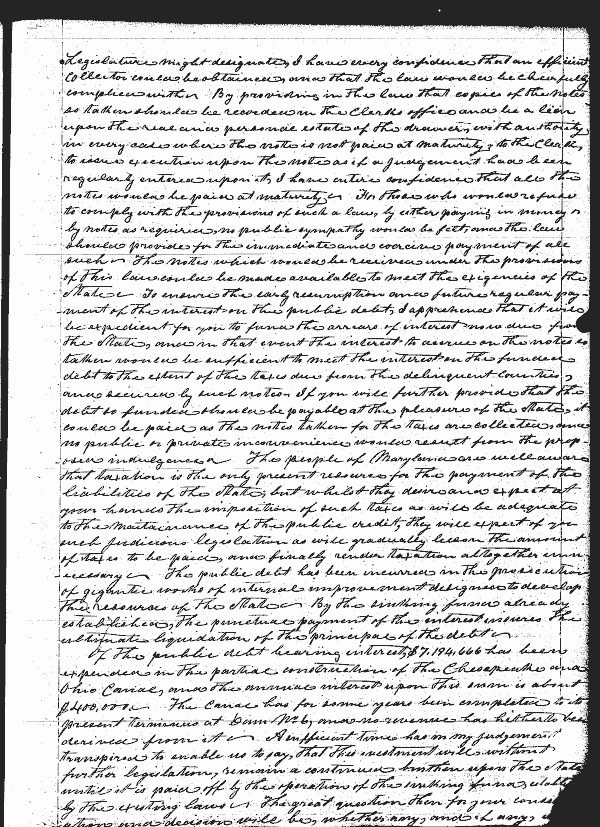 Legislature might designate, I have every confidence that an efficient
Collector could be obtained, and that the law would be cheerfully
complied with. By providing in the law that copies of the notes
so taken should be recorded in the Clerks office and be a lien
upon the real and personal estate of the drawers, with authority,
in every case where the note is not paid at maturity, to the Clerk,
to issue execution upon the note as if a Judgement had been
regularly entered upon it, I have entire confidence that all the
notes would be paid at maturity. For those who would refuse
to comply with the provisions of such a law, by either paying in money or
by notes as required, no public sympathy would be felt, and the law
should provide for the immediate and coercive payment of all
such. The notes which would be received under the provisions
of this law could be made available to meet the exigencies of the
State. To ensure the early resumption and future regular pay-
ment of the interest on the public debt, I apprehend that it will
be expedient for you to fund the arrears of interest now due from
the State, and in that event the interest to accrue on the notes so
taken would be sufficient to meet the interest on the funded
debt to the extent of the taxes due from the delinquent Counties,
and secured by such notes. If you will further provide that the
debt so funded should be payable at the pleasure of the State, it
could be paid as the notes taken for the taxes are collected, and
no public or private inconvenience would result from the prop-
osed indulgence. The people of Maryland are well aware
that taxation is the only present resource for the payment of the
liabilities of the State, but whilst they desire and expect at
your hands the imposition of such taxes as will be adequate
to the maintainance of the public credit, they will expect of you
such Judicious legislation as will gradually lessen the amount
of taxes to be paid, and finally render taxation altogether unn
ecessary. The public debt has been incurred in the prosecution
of gigantic works of internal improvement designed to develop
the resources of the State. By the sinking fund already
established, the punctual payment of the interest insures the
ultimate liquidation of the principal of the debt.
Of the public debt bearing interest, $7,194,666 has been
expended in the partial construction of the Chesapeake and
Ohio Canal, and the annual interest upon this sum is about
$400,000. The Canal has for some years been completed to its
present terminus at Dam No 6, and no revenue has hitherto been
derived from it. A sufficient time has in my judgement
transpired to enable us to say, that this investment will, without
further legislation, remain a continued burthen upon the State
until it is paid off by the operation of the sinking fund, establ
by the existing laws. The great question then for your consid
ation and decision will be, whether any, and if any, w